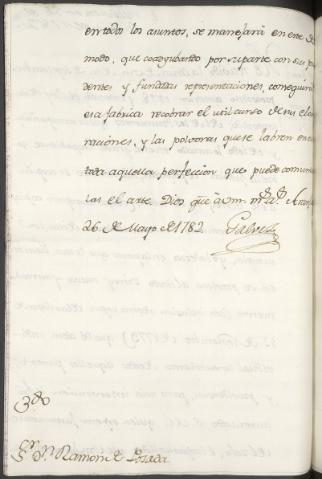 en todos los asuntos, se manejará en este de
modo, que coadyubando por su parte con sus pru
dentes y fundadas representaciones, conseguirá
esa fabrica recobrar el util curso de sus elabo
raciones, y las polvoras que se labren en ella
toda aquella perfeccion que puede comuni
las el arte. Dios gũe à Vm m.s a.s Aran
26. de Mayo de 1782.
Galvez
S.r D.n Ramon de Posada.